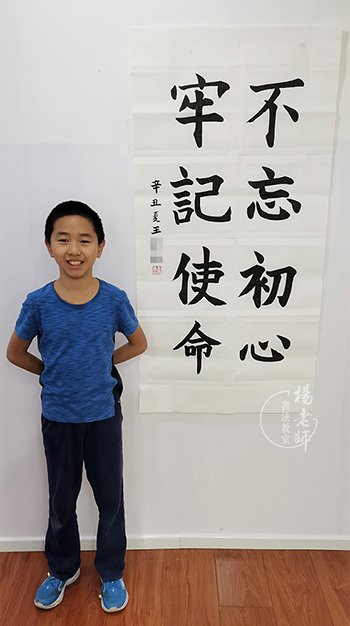 不忘初心
牢記使命
辛丑夏王
楊老師
書法教室